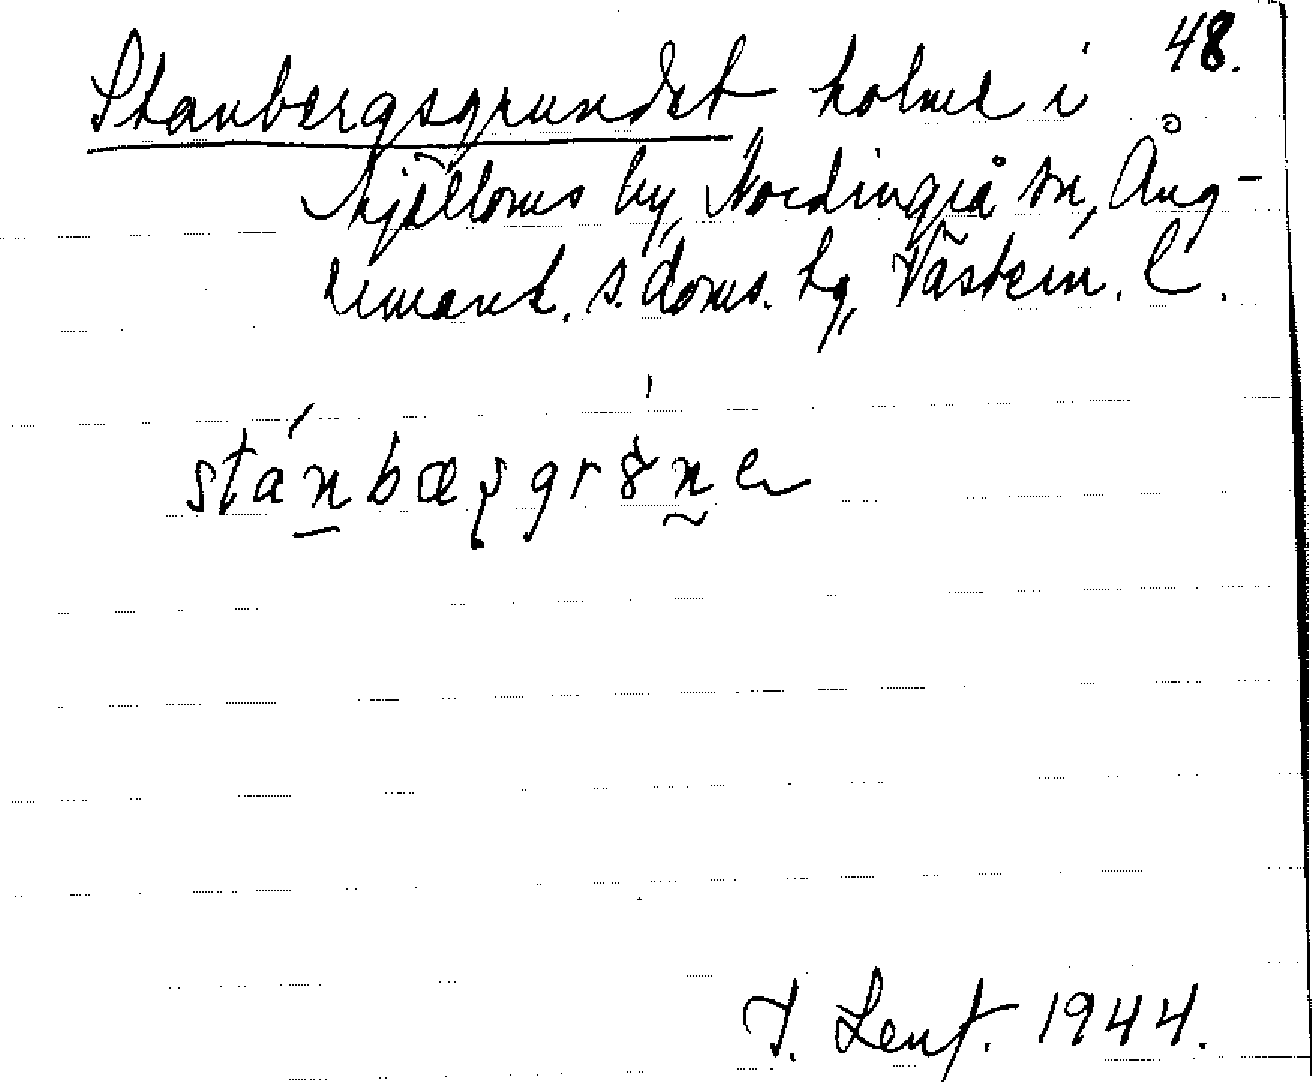 48.
Stanbergsgrundet holme i
Mjälloms by, Nordingrå sn, Ång-
ermanl. s. doms. hg, Västern. l.
stánbæʂgrȣne
I. Lenf. 1944.